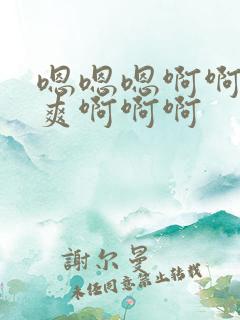 嗯嗯嗯啊啊
爽啊啊啊
謝尔曼
未经同意禁止转载